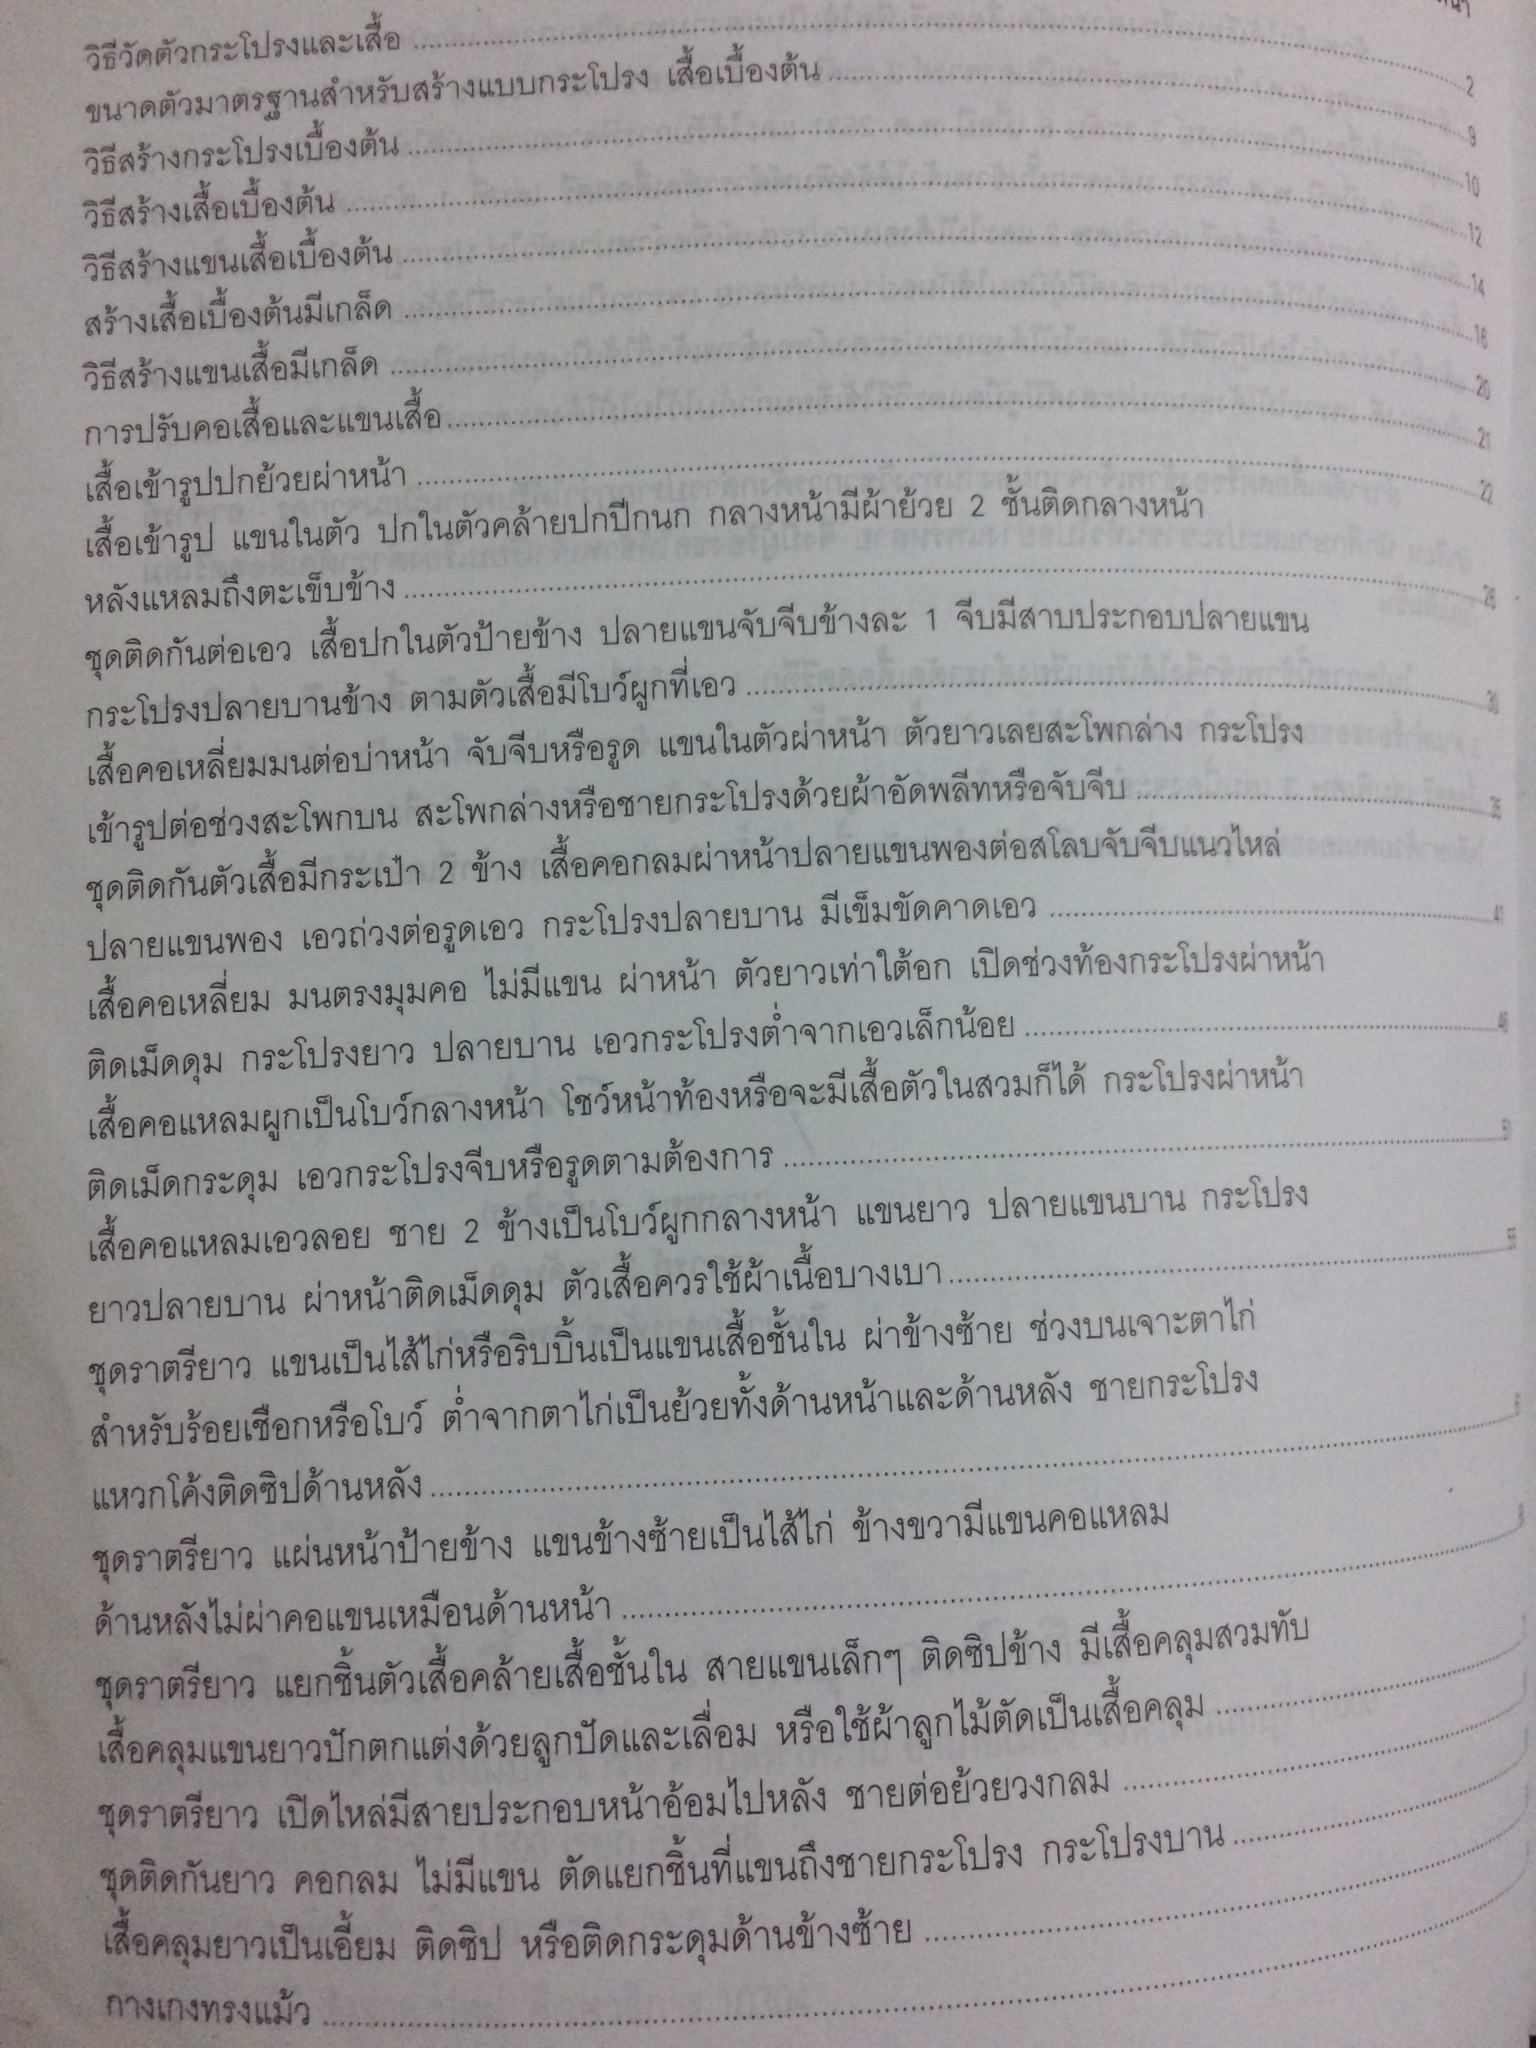 วิธีวัดตัวกระโปรงและเสื้อ ........ 2
ขนาดตัวมาตรฐานสำหรับสร้างแบบกระโปรง เสื้อเบื้องต้น ........ 9
วิธีสร้างกระโปรงเบื้องต้น ........ 10
วิธีสร้างเสื้อเบื้องต้น ........ 12
วิธีสร้างแขนเสื้อเบื้องต้น ........ 14
สร้างเสื้อเบื้องต้นมีเกล็ด ........ 18
วิธีสร้างแขนเสื้อมีเกล็ด ........ 20
การปรับคอเสื้อและแขนเสื้อ ........ 21
เสื้อเข้ารูปปกย้วยผ่าหน้า ........ 22
เสื้อเข้ารูป แขนในตัว ปกในตัวคล้ายปกปีกนก กลางหน้ามีผ้าย้วย 2 ชั้นติดกลางหน้า
หลังแหลมถึงตะเข็บข้าง ........
ชุดติดกันต่อเอว เสื้อปกในตัวป้ายข้าง ปลายแขนจับจีบข้างละ 1 จีบมีสาบประกอบปลายแขน
กระโปรงปลายบานข้าง ตามตัวเสื้อมีโบว์ผูกที่เอว ........ 30
เสื้อคอเหลี่ยมมนต่อบ่าหน้า จับจีบหรือรูด แขนในตัวผ่าหน้า ตัวยาวเลยสะโพกล่าง กระโปรง
เข้ารูปต่อช่วงสะโพกบน สะโพกล่างหรือชายกระโปรงด้วยผ้าอัดพลีทหรือจับจีบ ........
ชุดติดกันตัวเสื้อมีกระเป๋า 2 ข้าง เสื้อคอกลมผ่าหน้าปลายแขนพองต่อสโลบจับจีบแนวไหล่
ปลายแขนพอง เอวถ่วงต่อรูดเอว กระโปรงปลายบาน มีเข็มขัดคาดเอว ........ 41
เสื้อคอเหลี่ยม มนตรงมุมคอ ไม่มีแขน ผ่าหน้า ตัวยาวเท่าใต้อก เปิดช่วงท้องกระโปรงผ่าหน้า
ติดเม็ดดุม กระโปรงยาว ปลายบาน เอวกระโปรงต่ำจากเอวเล็กน้อย ........
เสื้อคอแหลมผูกเป็นโบว์กลางหน้า โชว์หน้าท้องหรือจะมีเสื้อตัวในสวมก็ได้ กระโปรงผ่าหน้า
ติดเม็ดกระดุม เอวกระโปรงจีบหรือรูดตามต้องการ ........
เสื้อคอแหลมเอวลอย ชาย 2 ข้างเป็นโบว์ผูกกลางหน้า แขนยาว ปลายแขนบาน กระโปรง
ยาวปลายบาน ผ่าหน้าติดเม็ดดุม ตัวเสื้อควรใช้ผ้าเนื้อบางเบา ........
ชุดราตรียาว แขนเป็นไส้ไก่หรือริบบิ้นเป็นแขนเสื้อชั้นใน ผ่าข้างซ้าย ช่วงบนเจาะตาไก่
สำหรับร้อยเชือกหรือโบว์ ต่ำจากตาไก่เป็นย้วยทั้งด้านหน้าและด้านหลัง ชายกระโปรง
แหวกโค้งติดซิปด้านหลัง ........
ชุดราตรียาว แผ่นหน้าป้ายข้าง แขนข้างซ้ายเป็นไส้ไก่ ข้างขวามีแขนคอแหลม
ด้านหลังไม่ผ่าคอแขนเหมือนด้านหน้า ........
ชุดราตรียาว แยกชิ้นตัวเสื้อคล้ายเสื้อชั้นใน สายแขนเล็กๆ ติดซิปข้าง มีเสื้อคลุมสวมทับ
เสื้อคลุมแขนยาวปักตกแต่งด้วยลูกปัดและเลื่อม หรือใช้ผ้าลูกไม้ตัดเป็นเสื้อคลุม ........
ชุดราตรียาว เปิดไหล่มีสายประกอบหน้าอ้อมไปหลัง ชายต่อย้วยวงกลม ........
ชุดติดกันยาว คอกลม ไม่มีแขน ตัดแยกชิ้นที่แขนถึงชายกระโปรง กระโปรงบาน ........
เสื้อคลุมยาวเป็นเอี๊ยม ติดซิป หรือติดกระดุมด้านข้างซ้าย ........
กางเกงทรงแม้ว ........